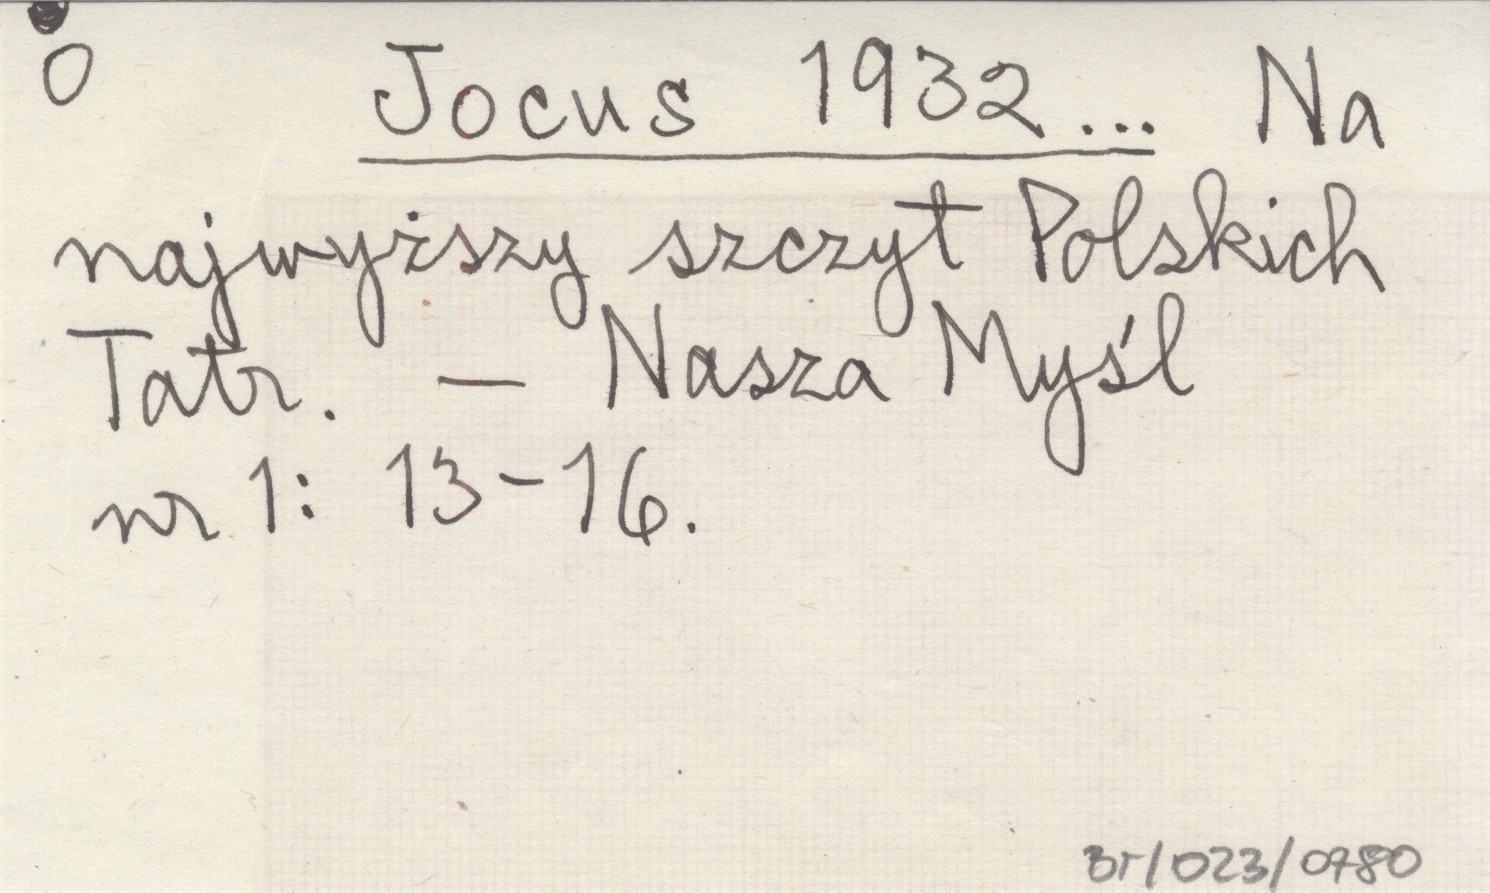 O Jocus 1932... Na
najwyższy szczyt Polskich
Tatr. — Nasza Myśl
nr 1: 13-16.
BT/023/0780